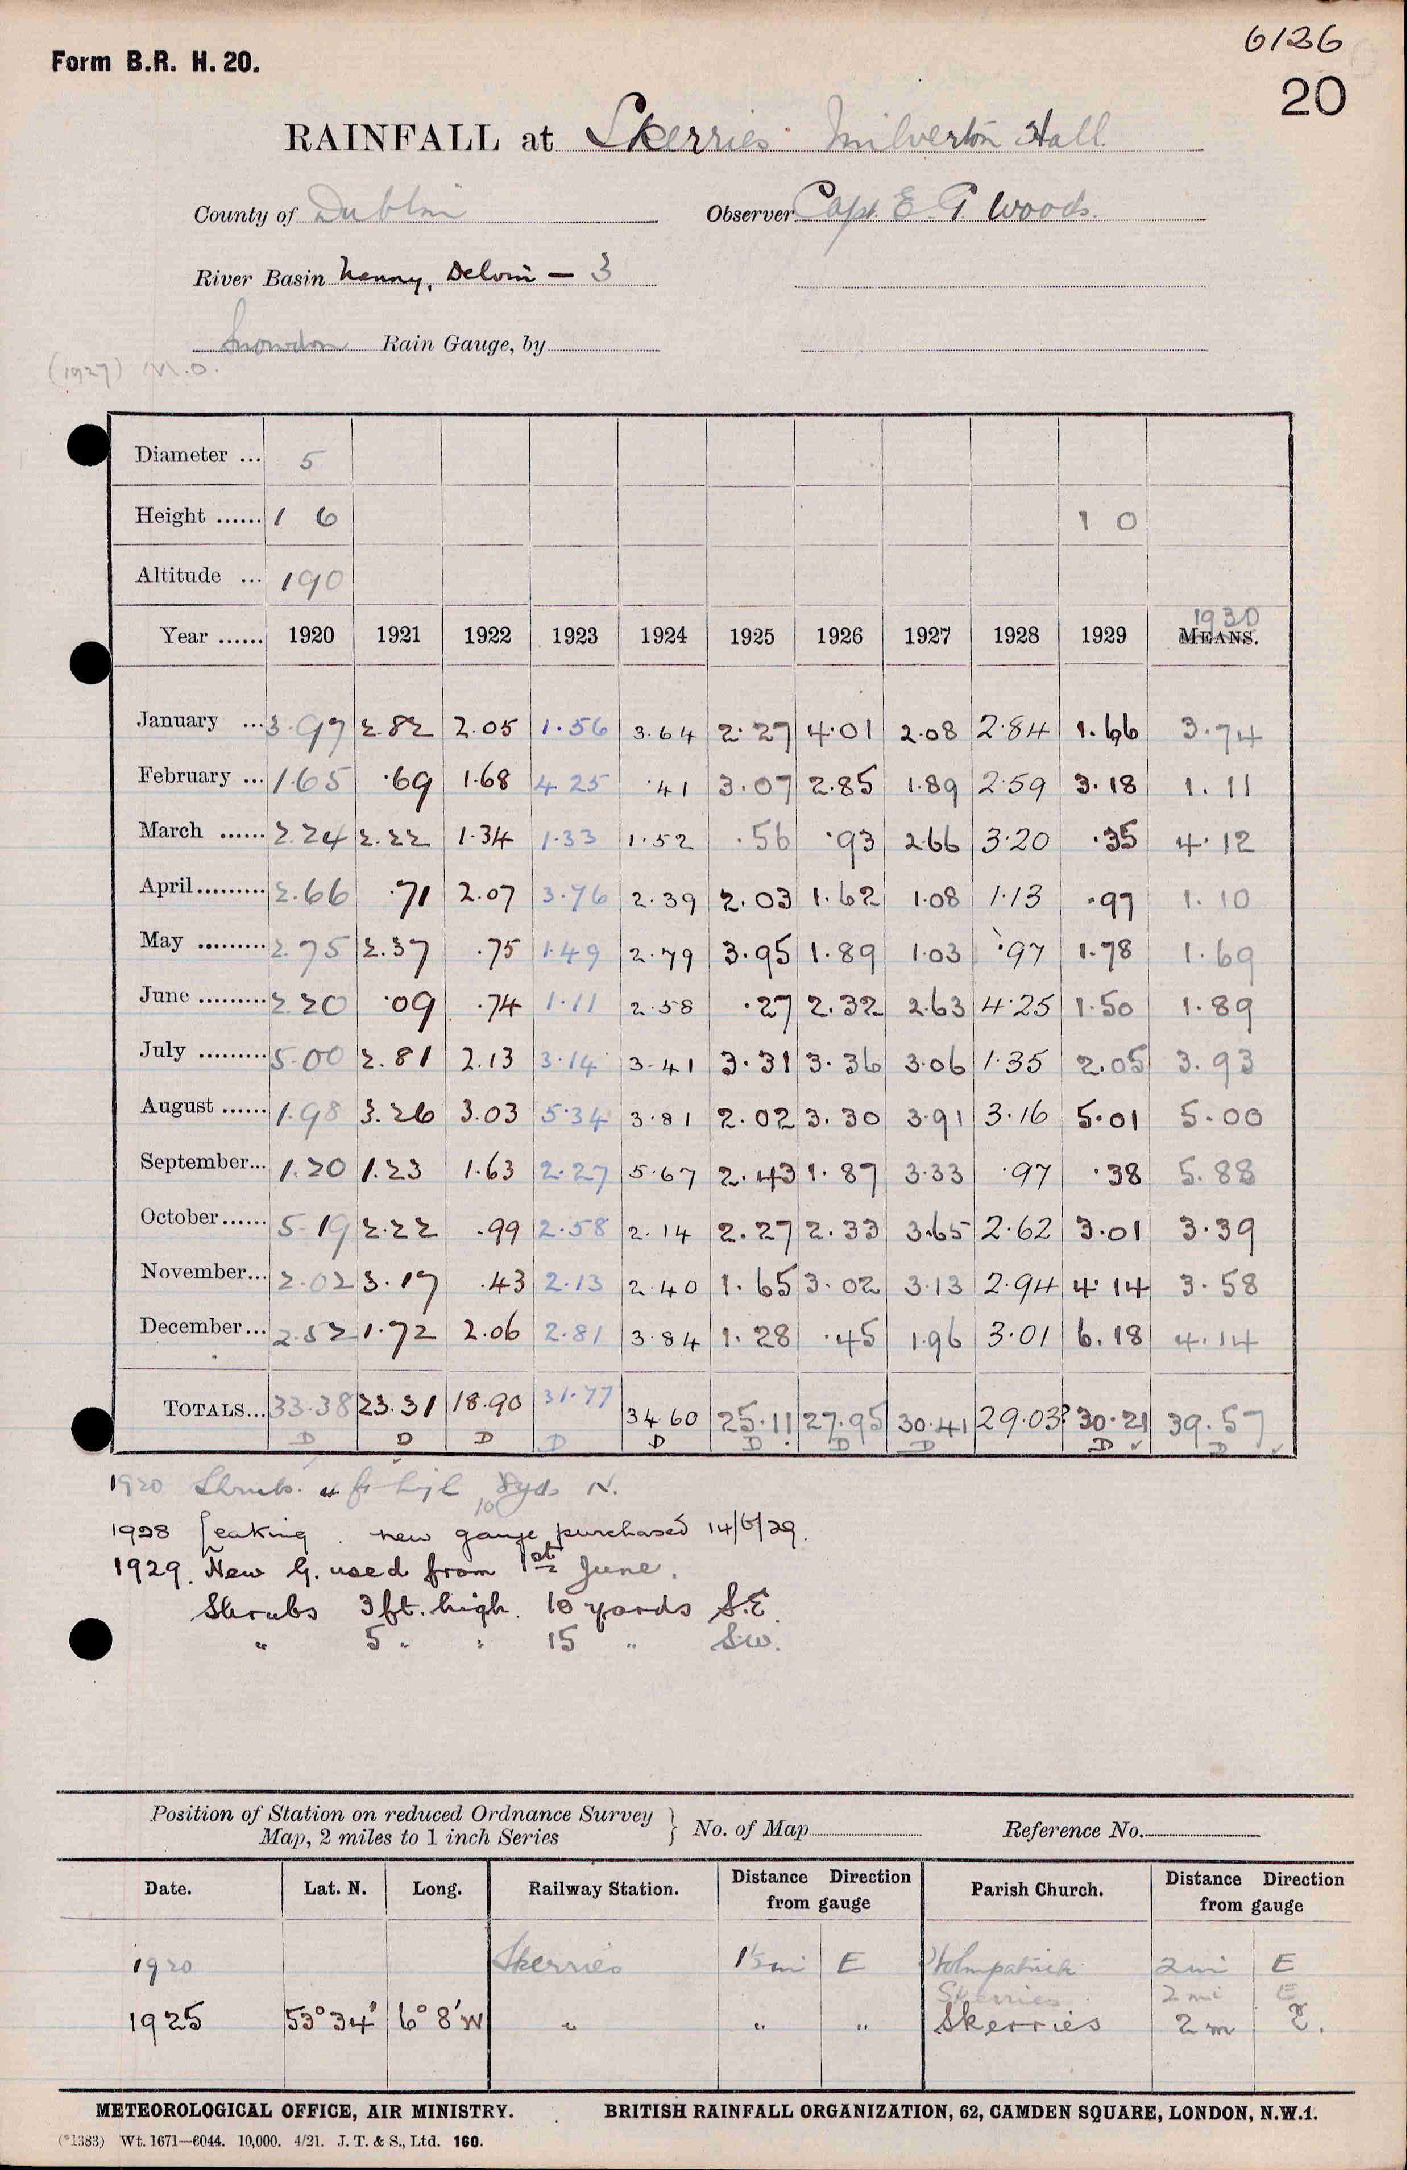 6136
Form B.R. H. 20.
20
RAINFALL at Skerries Milverton Hall
County of Dublin Observer Capt. E. P Woods.
River Basin Nanny, Delvin — 3
Snowdon Rain Gauge, by
(1927) M.O.
Diameter ... 5
Height ...... 1 6 1 0
Altitude ... 190
1930
Year ...... 1920 1921 1922 1923 1924 1925 1926 1927 1928 1929 MEANS.
January ... 3.97 2.82 2.05 1.56 3.64 2.27 4.01 2.08 2.84 1.66 3.74
February ... 1.65 .69 1.68 4.25 .41 3.07 2.85 1.89 2.59 3.18 1.11
March ...... 2.24 2.22 1.34 1.33 1.52 .56 .93 2.66 3.20 .35 4.12
April ......... 2.66 .71 2.07 3.76 2.39 2.03 1.62 1.08 1.13 .97 1.10
May ......... 2.75 2.37 .75 1.49 2.79 3.95 1.89 1.03 .97 1.78 1.69
June ......... 2.20 .09 .74 1.11 2.58 .27 2.32 2.63 4.25 1.50 1.89
July ......... 5.00 2.81 2.13 3.14 3.41 3.31 3.36 3.06 1.35 2.05 3.93
August ...... 1.98 3.26 3.03 5.34 3.81 2.02 3.30 3.91 3.16 5.01 5.00
September... 1.20 1.23 1.63 2.27 5.67 2.43 1.87 3.33 .97 .38 5.88
October...... 5.19 2.22 .99 2.58 2.14 2.27 2.33 3.65 2.62 3.01 3.39
November... 2.02 3.17 .43 2.13 2.40 1.65 3.02 3.13 2.94 4.14 3.58
December... 2.52 1.72 2.06 2.81 3.84 1.28 .45 1.96 3.01 6.18 4.14
TOTALS... 33.38 23.31 18.90 31.77 34 60 25.11 27.95 30.41 29.03? 30.21 39.57
D D D D D D D D D ✓ D ✓
1920 Shrubs 4 ft high 8 yds N.
10
1928 leaking. new gauge purchased 14/6/29.
1929. New G. used from 1st June.
Shrubs 3 ft. high. 10 yards S.E.
" 5 " " 15 " S.W.
Position of Station on reduced Ordnance Survey
Map, 2 miles to 1 inch Series } No. of Map Reference No.
Date. Lat. N. Long. Railway Station. Distance Direction from gauge Parish Church. Distance Direction from gauge
1920 Skerries 1½ mi E Holmpatrick 2 mi E
Skerries 2 mi E
1925 53° 34' 6° 8' W " " " Skerries 2 m E.
METEOROLOGICAL OFFICE, AIR MINISTRY. BRITISH RAINFALL ORGANIZATION, 62, CAMDEN SQUARE, LONDON, N.W.1.
(*1383) Wt. 1671—6044. 10,000. 4/21. J. T. & S., Ltd. 160.